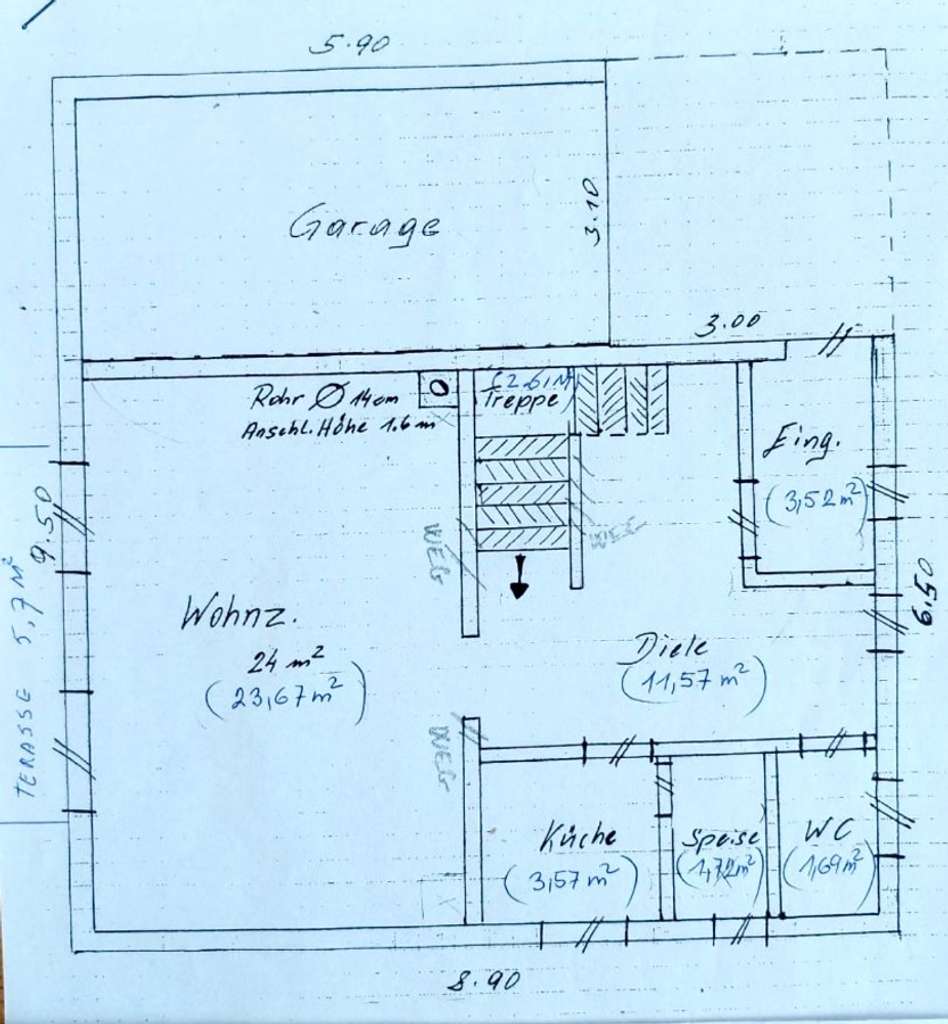 5.90
Garage
3.10
3.00
Rohr Ø 14cm
Anschl. Höhe 1.6 m
Treppe
Eing.
(3,52 m²)
9.50
TERASSE 5,7 M²
WEG
WEG
Wohnz.
24 m²
(23,67 m²)
Diele
(11,57 m²)
6.50
WEG
Küche
(3,57 m²)
Speise
(1,72 m²)
WC
(1,69 m²)
8.90